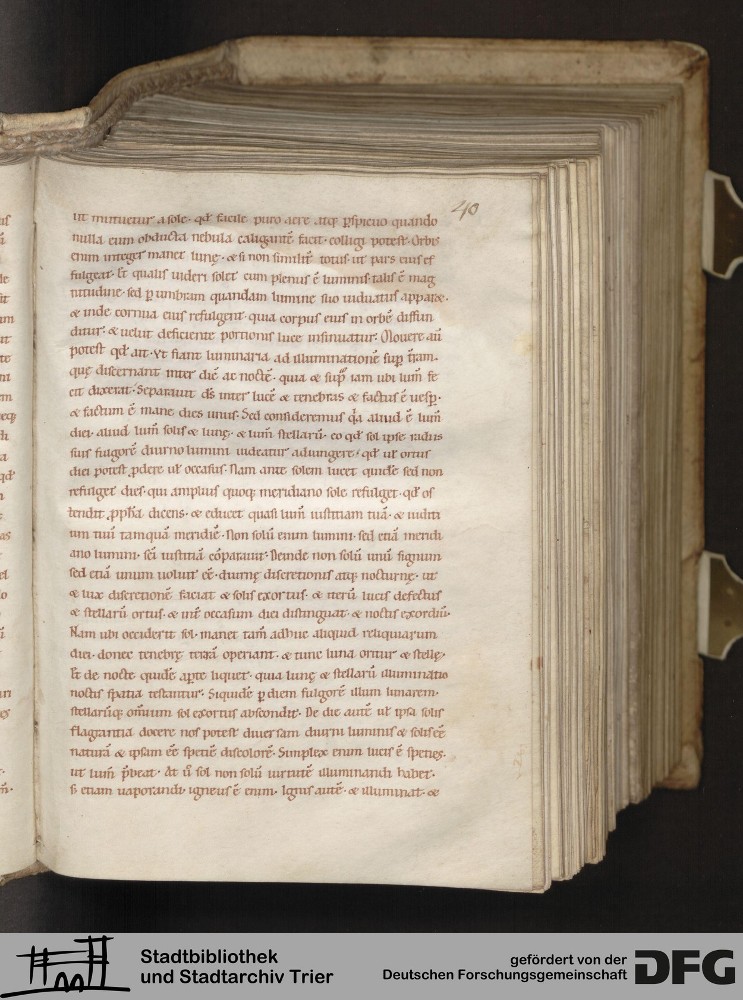 40
ut mutuetur a sole· qd̄ facile puro aere atq; ꝑspicuo quando
nulla eum obducta nebula caligantē facit· colligi potest· Orbis
enim integer manet lunę· & si non similit̄ totus· ut pars eius ef
fulgeat· Et qualis uideri solet cum plenus ē luminis· talis ē mag
nitudine· sed ꝑ umbram quandam lumine suo uiduatus apparet·
& inde cornua eius refulgent· quia corpus eius in orbē diffun
ditur· & uelut deficiente portionis luce insinuatur· Mouere aū
potest qd̄ ait· Vt fiant luminaria ad illuminationē suꝑ t̄ram·
quę discernant inter diē ac noctē· quia & sup̄ iam ubi lum̄ fe
cit dixerat· Separauit ds̄ inter lucē & tenebras & factus ē uesꝑ·
& factum ē mane dies unus· Sed consideremus q̄a aliud ē lum̄
diei· aliud lum̄ solis & lunę· & lum̄ stellarū· eo qd̄ sol ipse radiis
suis fulgorē diurno lumini uideatur adiungere· qd̄ ut̄ ortus
diei potest ꝓdere ut̄ occasus· Nam ante solem lucet quidē sed non
refulget dies· qui amplius quoq; meridiano sole refulget· qd̄ os
tendit ꝓph̄a dicens· & educet quasi lum̄ iustitiam tuā· & iuditi
um tuū tamquā meridiē· Non solū enim lumini· sed etiā meridi
ano lumini· sc̄i iustitiā cōparauit· Deinde non solū unū signum
sed etiā unum uoluit eē· diurnę discretionis atq; nocturnę· ut
& lux discretionē faciat & solis exortus· & iterū lucis defectus
& stellarū ortus· & int̄ occasum diei distinguat· & noctis exordiū·
Nam ubi occiderit sol· manet tam̄ adhuc aliquid reliquiarum
diei· donec tenebrę terrā operiant· & tunc luna oritur & stellę·
Et de nocte quidē aꝑte liquet· quia lunę & stellarū illuminatio
noctis spatia testantur· Siquidē ꝑ diem fulgorē illum lunarem·
stellarūq; om̄ium sol exortus abscondit· De die autē ut̄ ipsa solis
flagrantia docere nos potest diuersam diurni luminis & solis eē
naturā & ipsam eē spetiē discolorē· Simplex enim lucis ē speties·
ut lum̄ p̄beat· At ū sol non solū uirtutē illuminandi habet·
s; etiam uaporandi· igneus ē enim· Ignis autē· & illuminat· &
Stadtbibliothek
und Stadtarchiv Trier
gefördert von der
Deutschen Forschungsgemeinschaft
DFG